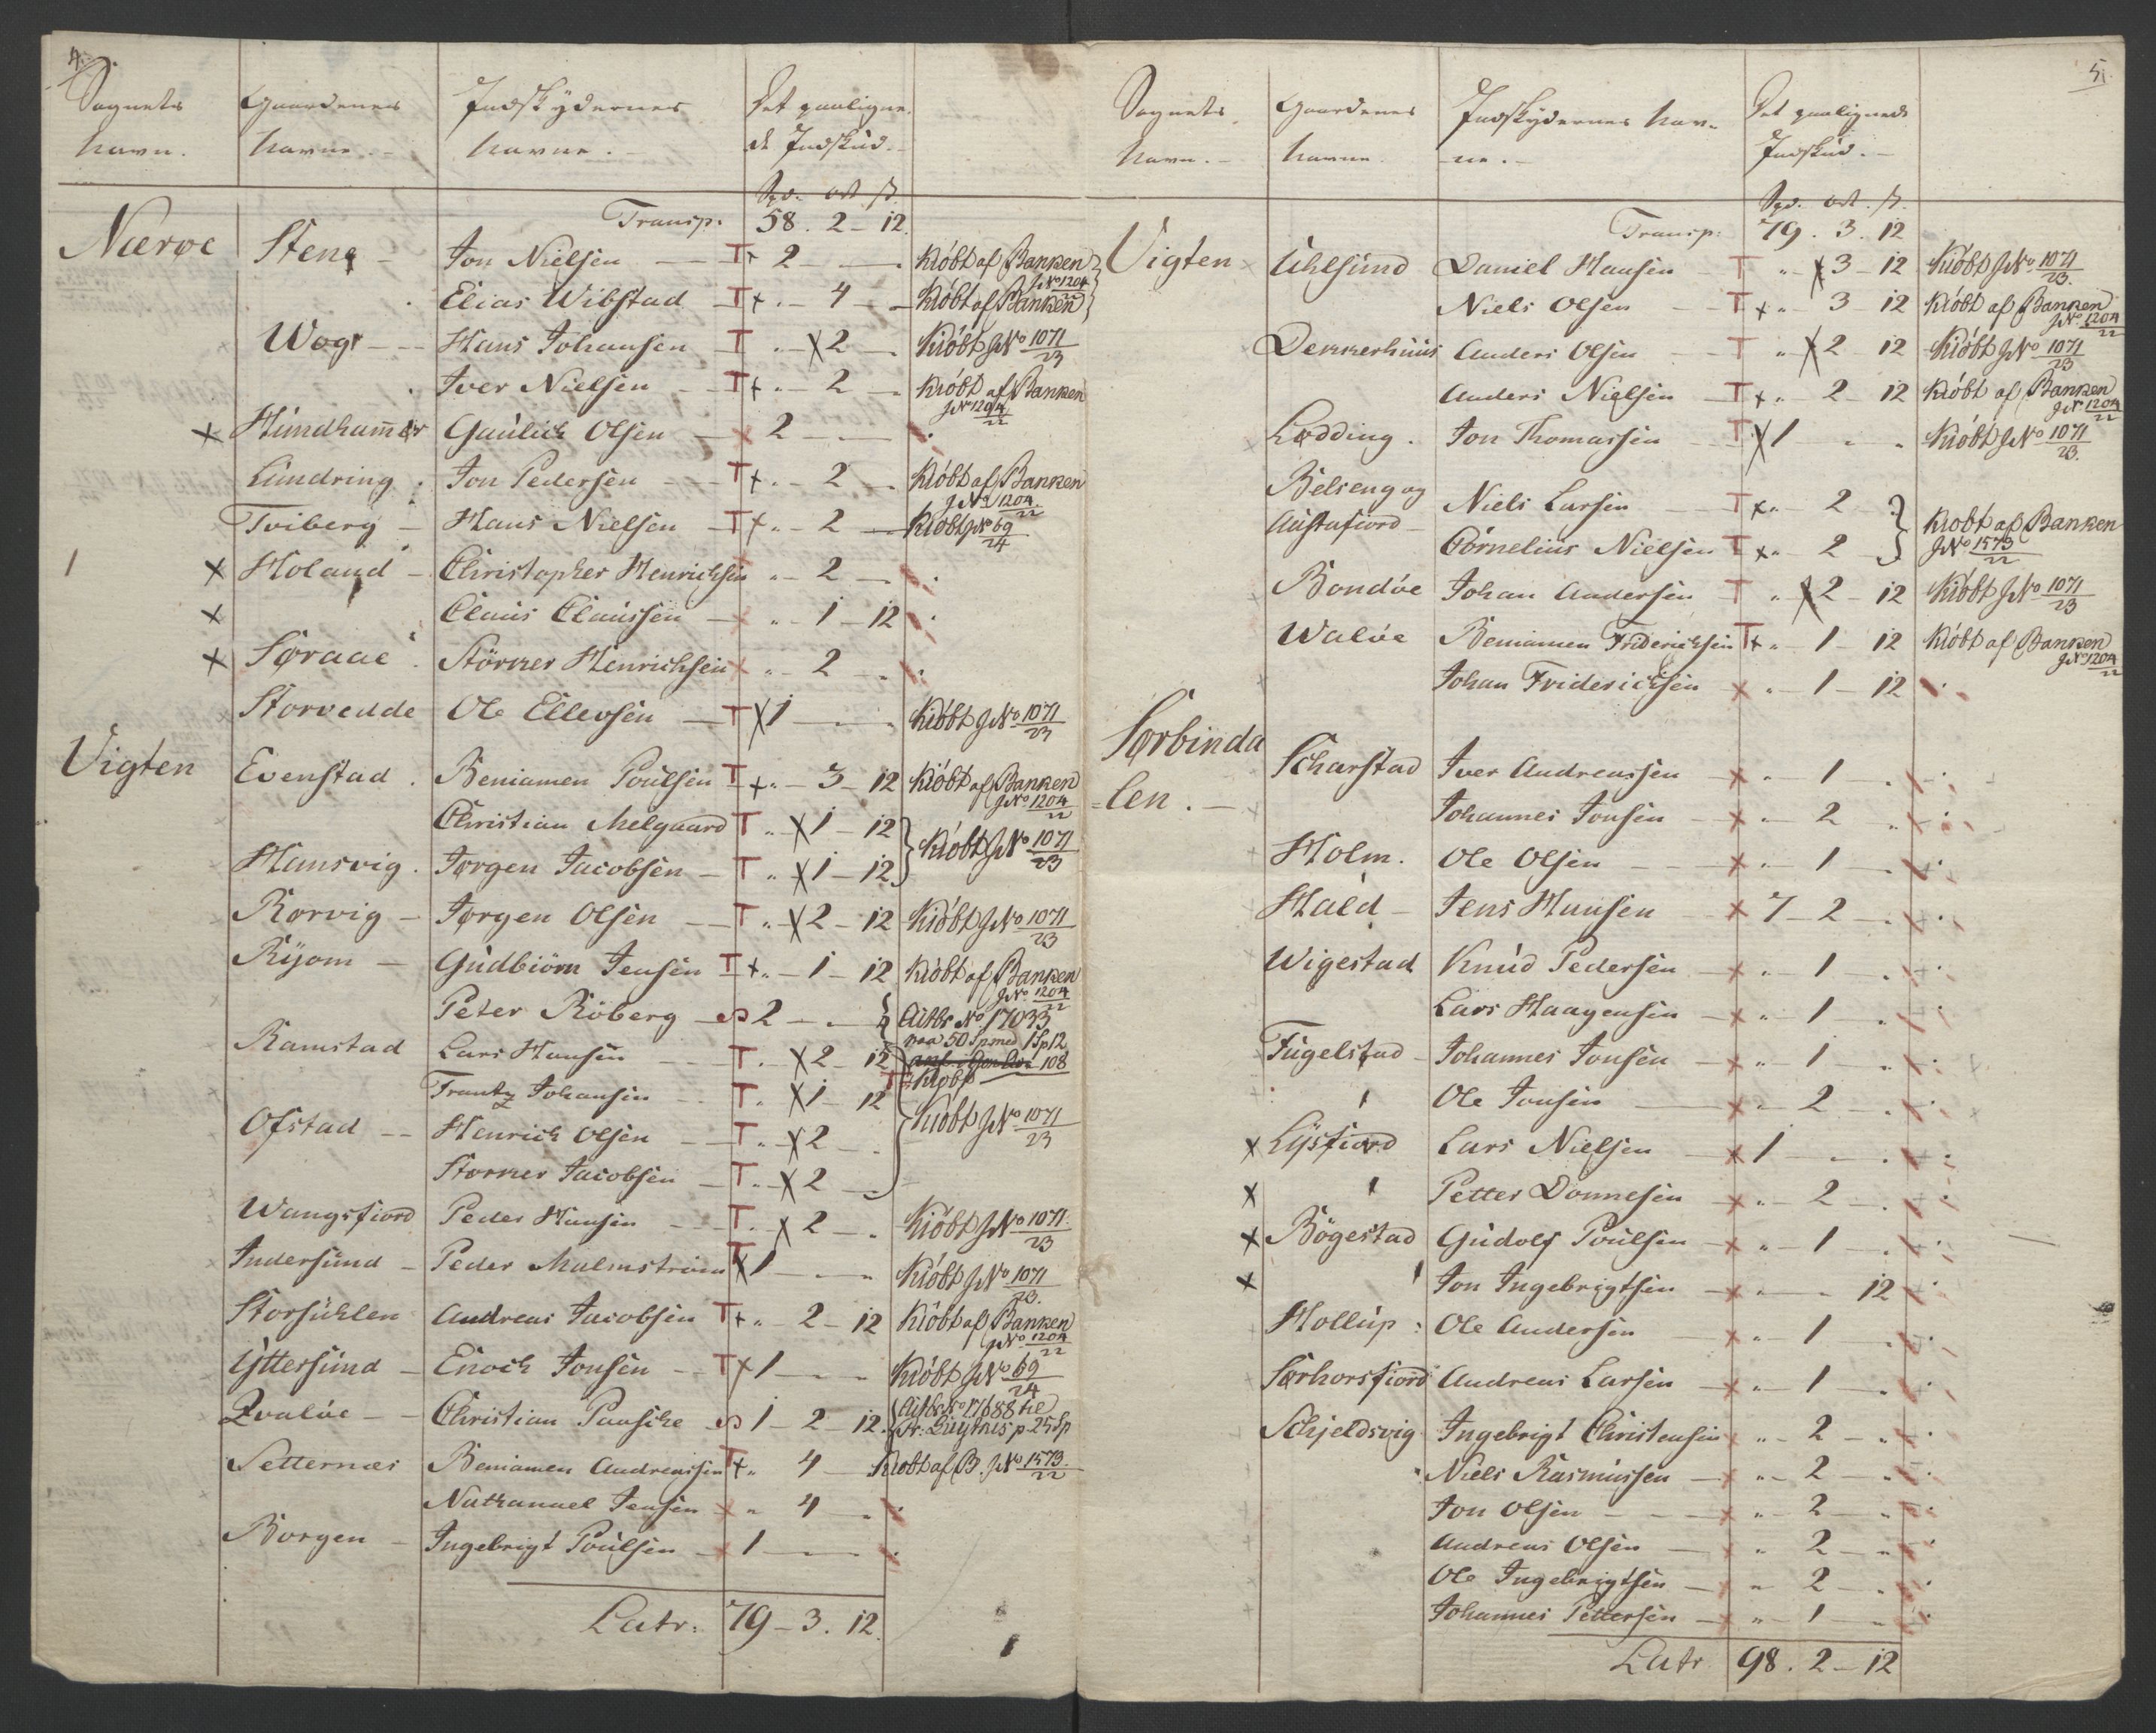 4.
Sognets Gaardenes Indskydernes Det paaligne-
Navn. Navne. Navne. de Indskud.
Spd. ort. ß.
Transp. 58. 2 - 12.
Næroe Stene - Jon Nielsen - T+ 2 - - Kiöbt af Banken
JNo 1204
Elias Wibstad T+ " - 4 - Kiöbt af Banken
Wogr - Hans Johansen T " X2 - Kiöbt JNo 1071/23
Iver Nielsen - T+ " - 2 - Kiöbt af Banken
JNo 1204/22
x Hundhammer Gaulich Olsen - x 2 - -
Lundring Jon Pedersen - T+ " - 2 - Kiöbt af Banken
JNo 1204/22
Tviberg - Hans Nielsen - T+ " - 2 - Kiöbt JNo 69/24
1 x Holand - Christopher Henrichsen " - 2 -
x Claus Claussen - x " - 1 - 12
x Søraae Störcker Henrichsen x " - 2 -
Storvedde Ole Ellevsen - T X1 - - Kiöbt JNo 1071/23
Vigten Evenstad. Beniamen Poulsen T+ " - 3 - 12 Kiöbt af Banken
JNo 1204/22
Christian Melgaard T " X1 - 12
Hansvig. Jørgen Jacobsen - T " X1 - 12 } Kiöbt JNo 1071/23
Rørvig - Jørgen Olsen - T " X2 - 12 Kiöbt JNo 1071/23
Ryom - Gudbiörn Jensen T+ " - 1 - 12 Kiöbt af Banken
JNo 1204/22
Peter Röberg - 2 - - No 17033
paa 50 Sp med 1 Sp 12
Ramstad Lars Hansen - T. X2 - 12 108
Kiöbt
Frantz Johansen - T. X1 - 12
Ofstad - Henrich Olsen - T " X2 - Kiöbt JNo 1071/23
Størker Jacobsen - T " X2 -
Wangsfiord Peder Hansen - T. X2 - Kiöbt JNo 1071/23
Indersund - Peder Malmstrøm T X1 - - Kiöbt JNo 1071/23.
Storsuhlen Andreas Jacobsen T+ " 2 - 12 Kiöbt af Banken
JNo 1204/22
Yttersund - Enoch Jonsen - T+1 - - Kiöbt JNo 69/24
Qvalöe - Christian Paasche 1 - 2 - 12. No 17688 til
p. 25 Sp
Setternæs Beniamen Andreassen T+ " 4 - Kiöbt af B. JNo 1573/22
Nathanael Jensen x " 4 -
Borgen - Ingebrigt Poulsen - x 1 - -
Latr: 79 - 3. 12.
5.
Sognets Gaardenes Indskydernes Nav- Det paalignede
Navn. Navne. ne. Indskud.
Spd. ort. ß.
Transp: 79. 3. 12
Vigten Uhlsund Daniel Hansen T " X3 - 12 Kiöbt JNo 1071/23.
Niels Olsen - T + " 3 - 12 Kiöbt af Banken
JNo 1204/22
Dekkerhuus Anders Olsen - T " X2 - 12 Kiöbt JNo 1071/23
Anders Nielsen - T + " 2 - 12 Kiöbt af Banken
JNo 1204/22
Lødding. Jon Thomassen - T X1 - " Kiöbt JNo 1071/23.
Belseng og
Niels Larsen - T x " 2 -
Austafiord Kiöbt af Banken
Cornelius Nielsen T x " 2 - JNo 1573/22
Bondöe Johan Andersen T " X2 - 12 Kiöbt JNo 1071/23
Walöe Beniamen Friderichsen T+ " 1 - 12 Kiöbt af Banken
JNo 1204/22
Johan Friderichsen x " - 1 - 12
Sørbinda
Scharstad Iver Andreassen x " 1 -
=len. -
Johannes Jonsen - x " 2
Holm. Ole Olsen - x " 1 -
Hald - Jens Hansen - x 7 - 2 -
Wigestad Knud Pedersen - x " 1 -
Lars Haagensen - x " 1 -
Fugelstad - Johannes Jonsen - x " 1 -
Ole Jonsen - x " 2 -
x Lysfiord Lars Nielsen - x 1 - -
x Petter Donnesen - x " 2 -
x Bögestad Gudolf Poulsen - x " 1 -
x Jon Ingebrigtsen - x " - 12
Hollup: Ole Andersen - x " 1
Sørhorsfiord Andreas Larsen - x " - 1 -
Schjeldsvig Ingebrigt Christensen x " - 2 -
Niels Rasmussen - x " - 2 -
Jon Olsen - x " - 2 -
Andreas Olsen - x " 2 -
Ole Ingebrigtsen - x " 2 -
Johannes Pettersen - x " - 1 -
Latr 98. 2 - 12